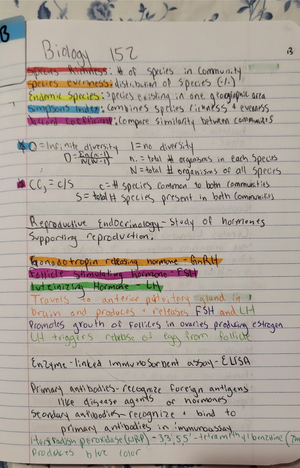 B
Biology 152
B
Species Richness: # of species in community
Species evenness: distribution of species (%)
Endemic Species: species existing in one geographic area
Simpsons Index: combines species richness + evenness
Jaccard Coefficient: compare similarity between communities
0 = Infinite diversity 1 = no diversity
D = Σn(n-1) / N(N-1) n = total # organisms in each species
N = total # organisms of all species
CCJ = c/S c = # species common to both communities
S = total # species present in both communities
Reproductive Endocrinology - study of hormones
supporting reproduction.
Gonadotropin releasing hormone - GnRH
Follicle stimulating hormone - FSH
Luteinizing Hormone - LH
Travels to anterior pituitary gland in
brain and produces + releases FSH and LH
Promotes growth of follicles in ovaries producing estrogen
LH triggers release of egg from follicle
Enzyme-linked immunosorbent assay - ELISA
Primary antibodies - recognize foreign antigens
like disease agents or hormones
Secondary antibodies - recognize + bind to
primary antibodies in immunoassay
Horseradish peroxidase (HRP) - 3,3',5,5'-tetramethylbenzidine
Produces blue color